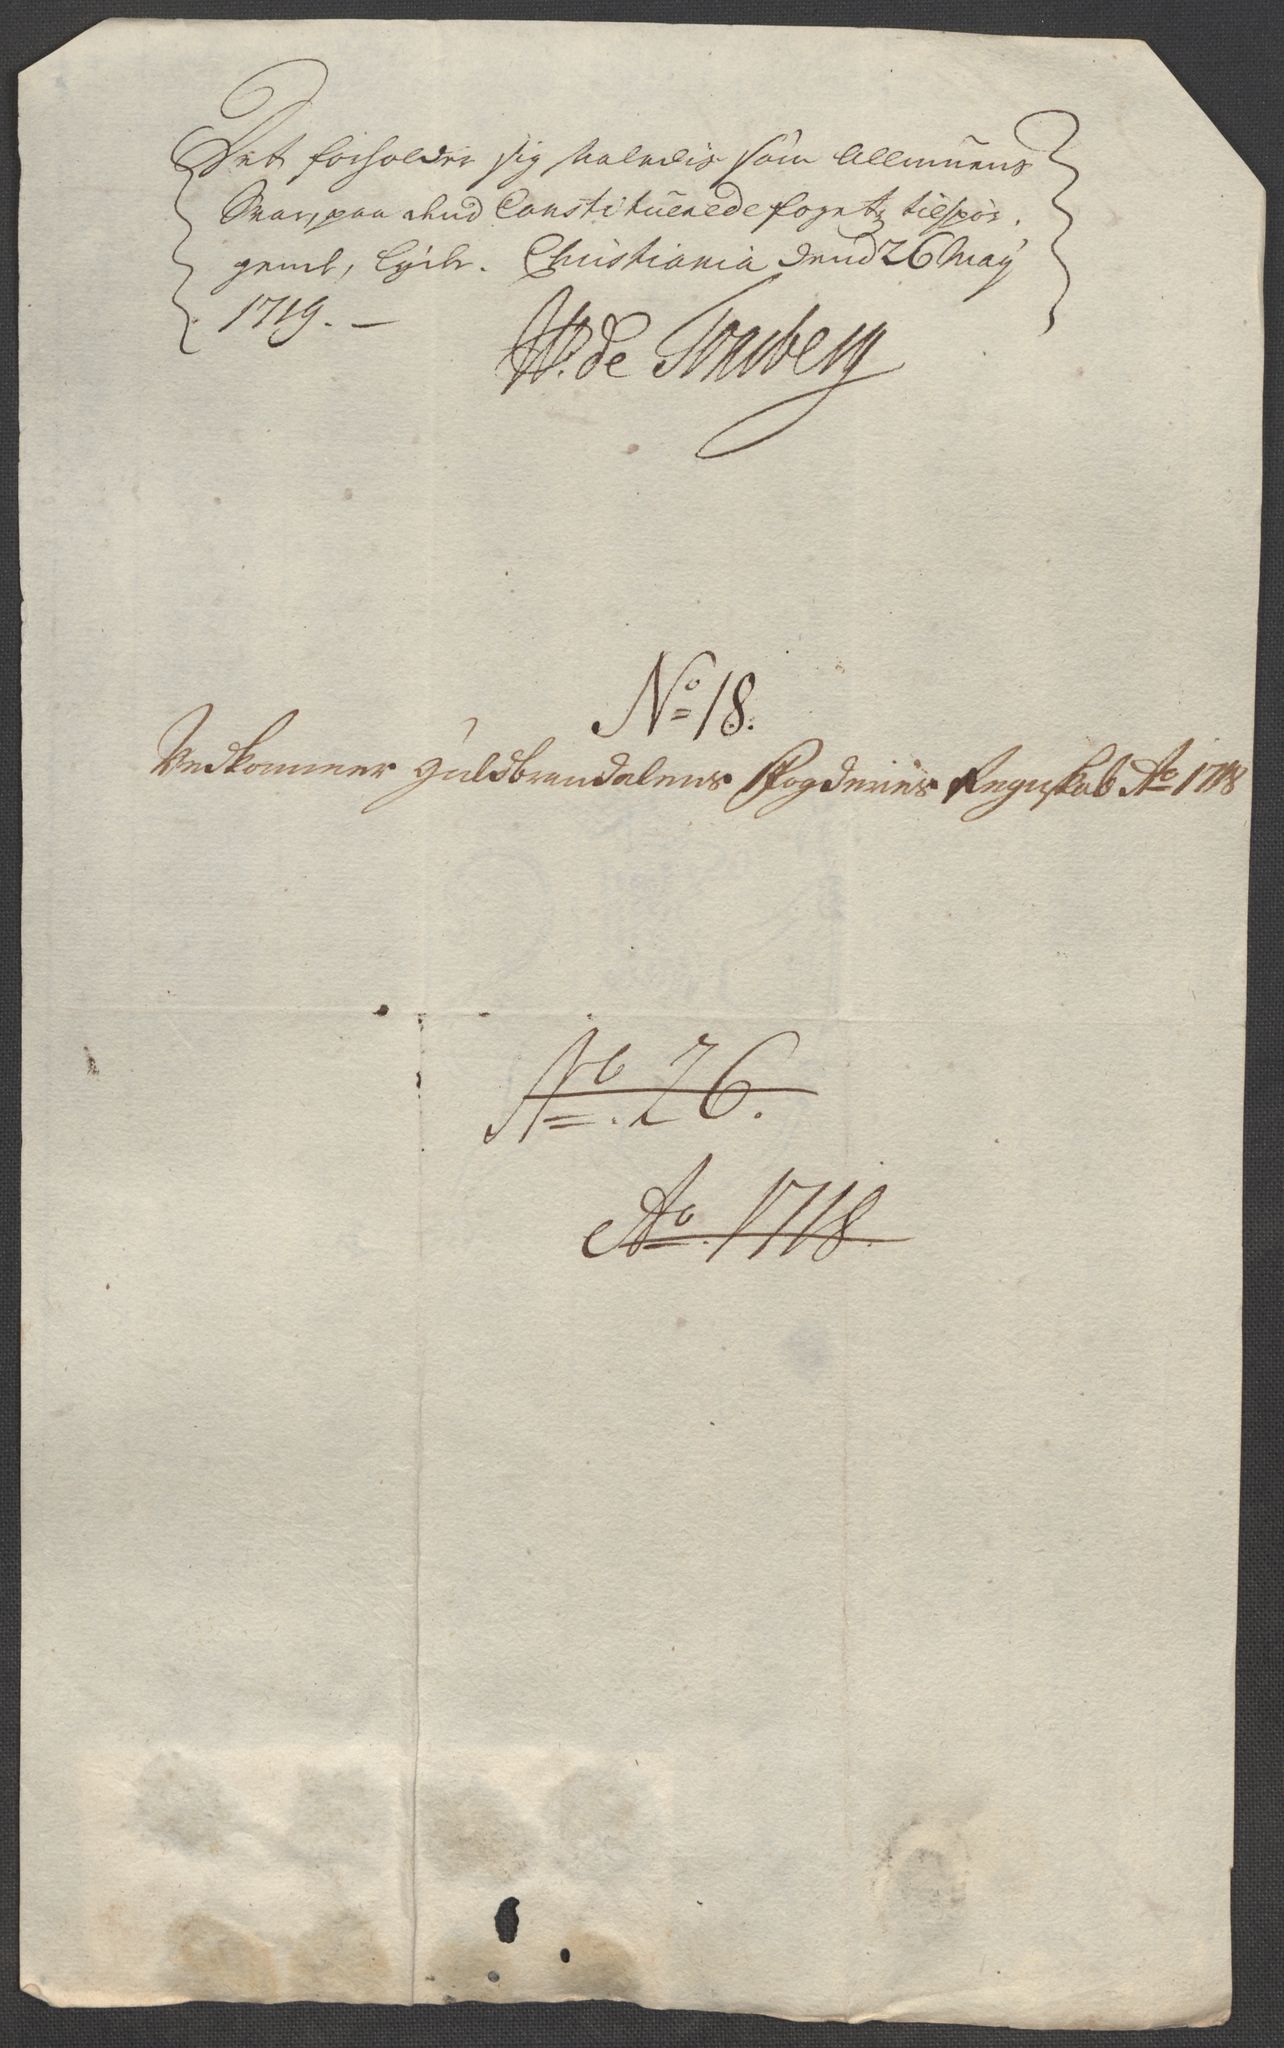 Det forholder sig saaledis som Allmuens
Svar, paa dend Constituerede fogetz tilspør,
gende, Christiania dend 26 May
1719. —
W. de Tonsberg
No 18.
Vedkommer Guldbrandalens Fogderies Regnskab Ao 1718
No. 26.
Ao. 1718